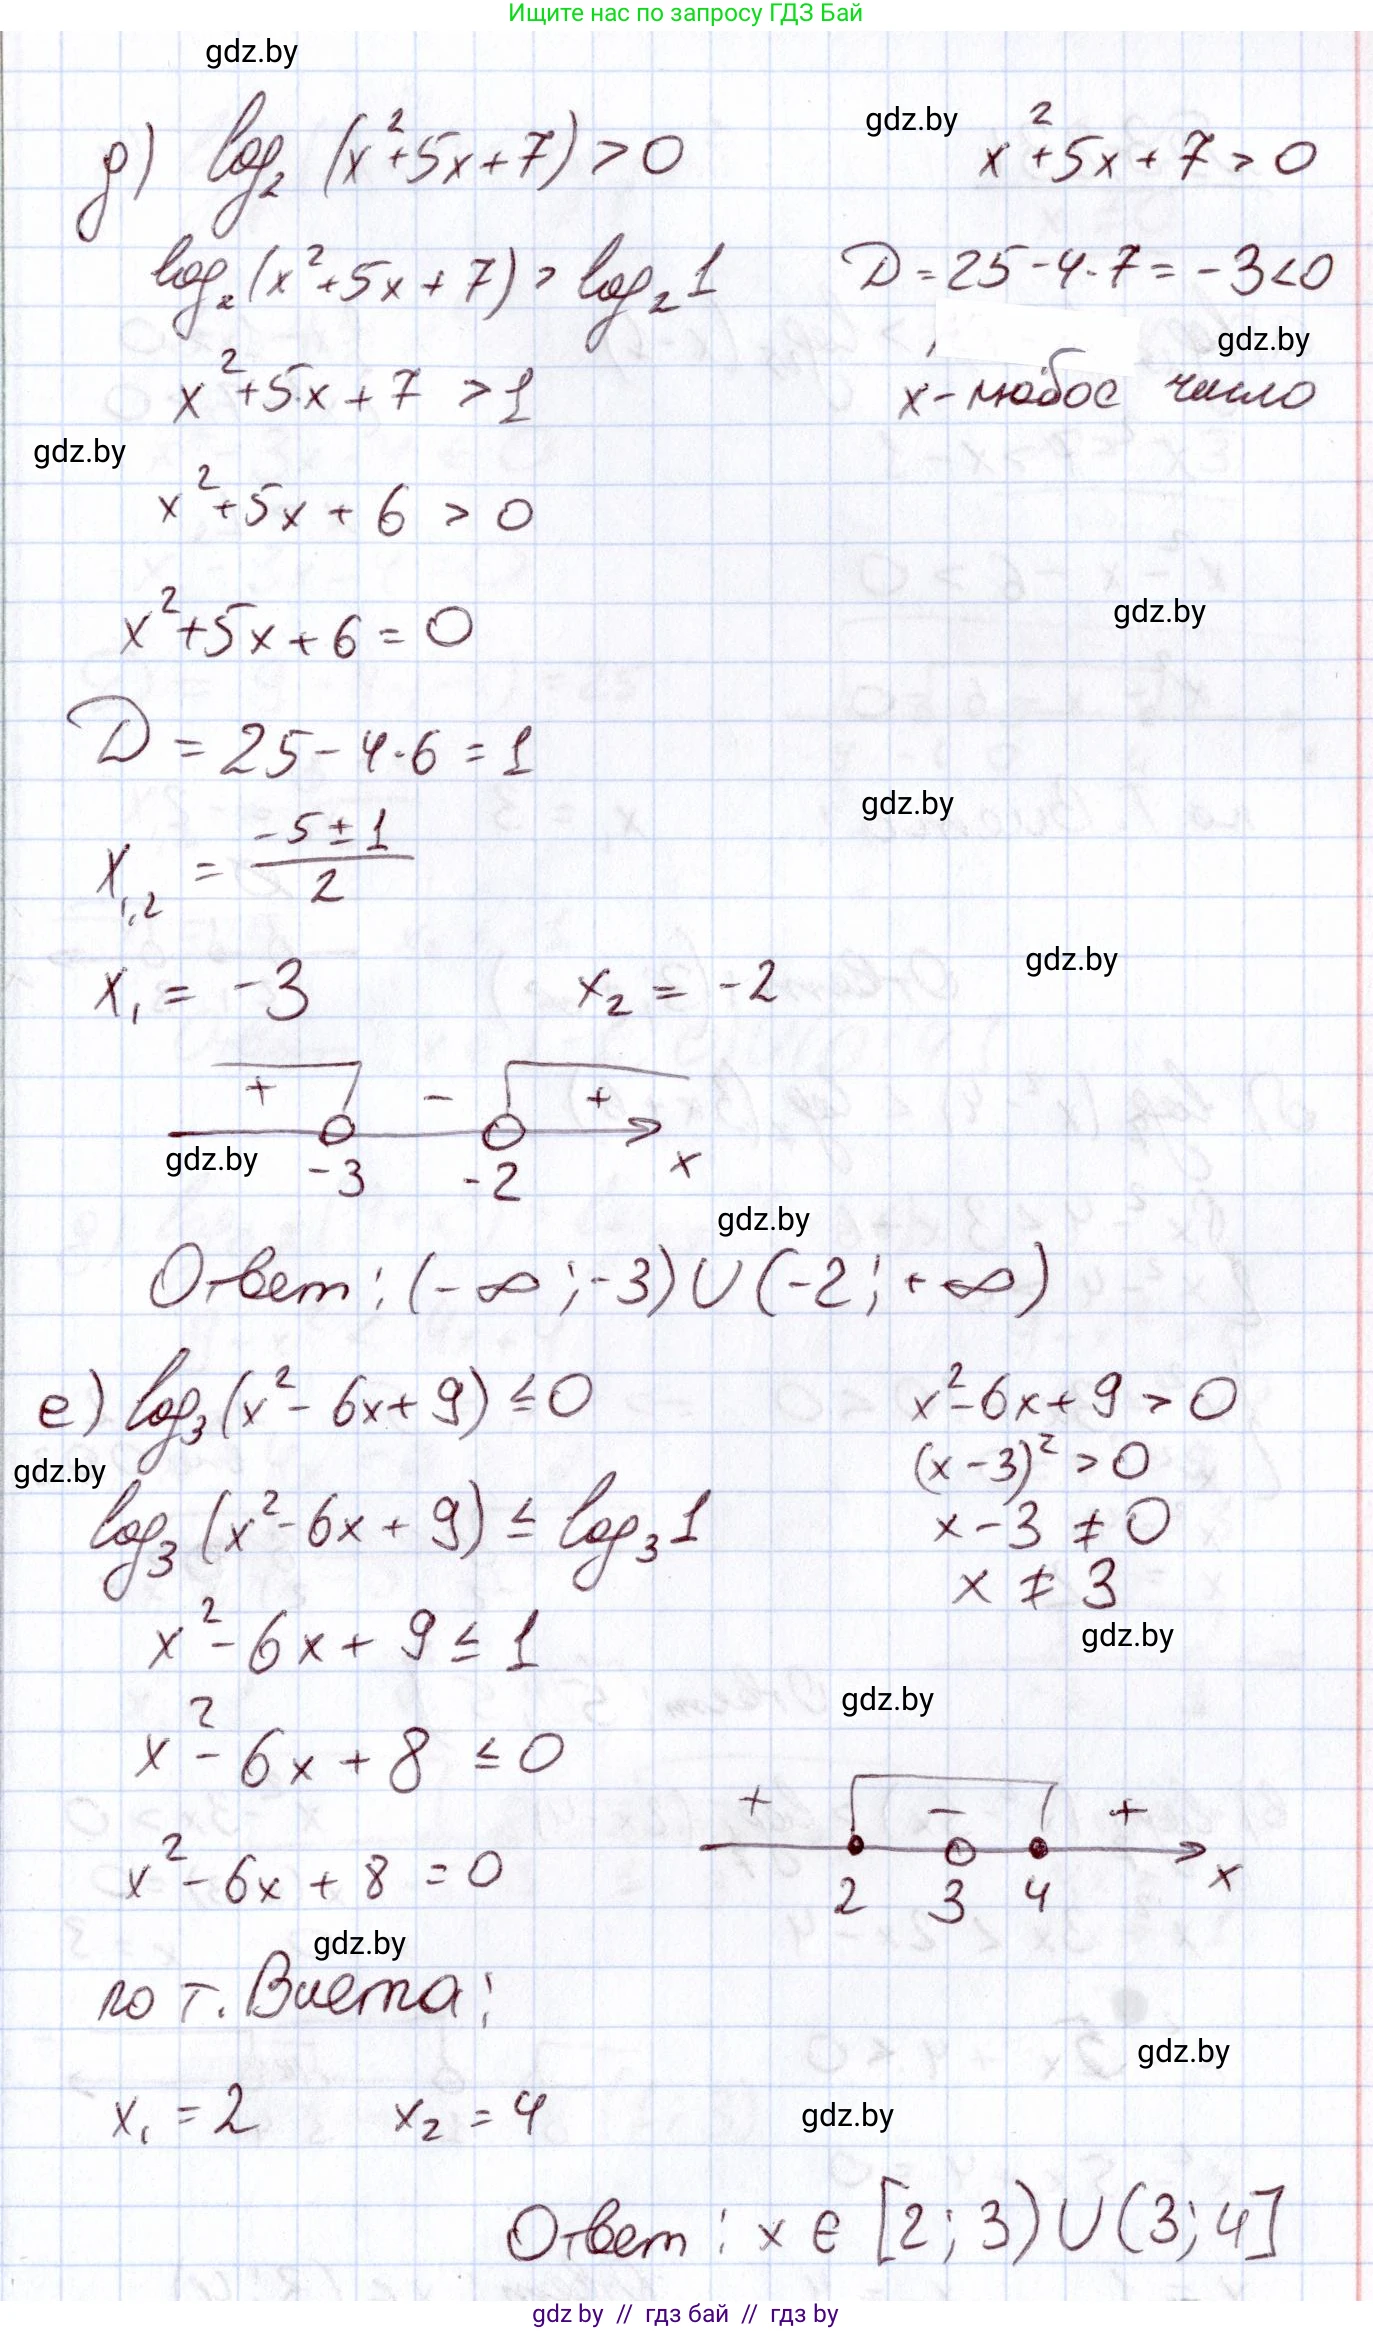 Ищите нас по запросу ГДЗ Бай
gdz.by
д) log₂ (x²+5x+7) > 0
gdz.by
x²+5x+7 > 0
log₂ (x²+5x+7) > log₂ 1
D = 25-4·7 = -3<0
gdz.by
x²+5x+7 > 1
x - любое число
gdz.by
x²+5x+6 > 0
x²+5x+6 = 0
gdz.by
D = 25-4·6 = 1
gdz.by
x₁,₂ = (-5±1)/2
gdz.by
x₁ = -3 x₂ = -2
+ - +
gdz.by
-3 -2 x
gdz.by
Ответ: (-∞;-3)∪(-2;+∞)
е) log₃(x²-6x+9) ≤ 0
x²-6x+9 > 0
gdz.by
(x-3)² > 0
log₃ (x²-6x+9) ≤ log₃ 1
x-3 ≠ 0
x ≠ 3
gdz.by
x²-6x+9 ≤ 1
gdz.by
x²-6x+8 ≤ 0
+ - +
2 3 4 x
x²-6x+8 = 0
gdz.by
по т. Виета:
gdz.by
x₁ = 2 x₂ = 4
gdz.by
Ответ: x ∈ [2;3)∪(3;4]
gdz by // гдз бай // гдз by